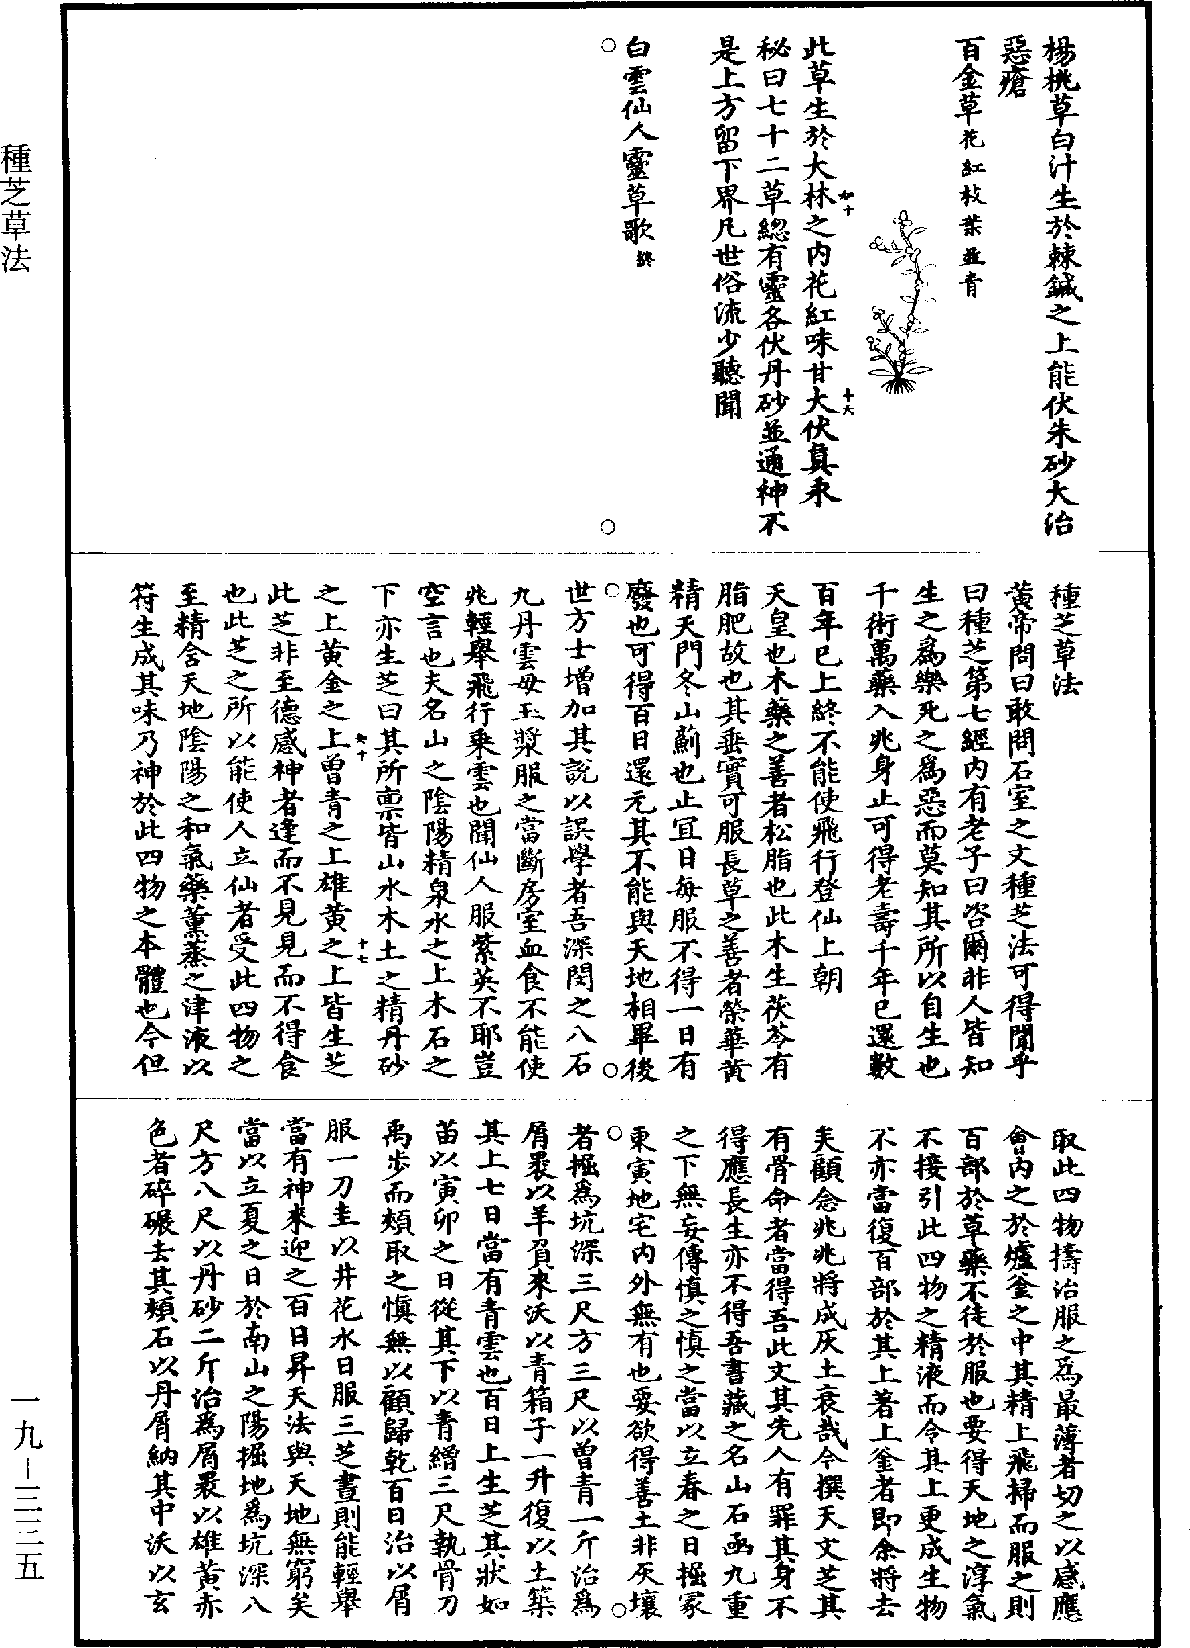 楊桃草白汁生於棘鍼之上能伏朱砂大治
惡瘡
百金草花紅枝葉並青
此草生於大林之内花紅味甘大伏真汞
秘曰七十二草緫有靈各伏丹砂並通神不
是上方留下界凡世俗流少聽聞
白雲仙人靈草歌終
種芝草法
黄帝問曰敢問石室之文種芝法可得聞乎
曰種芝第七經内有老子曰咨爾非人皆知
生之為樂死之為惡而莫知其所以自生也
千術萬藥入兆身止可得老壽千年已還數
百年已上終不能使飛行登仙上朝
天皇也木藥之善者松脂也此木生茯苓有
脂肥故也其垂實可服長草之善者榮華黄
精天門冬山薊也止宜日每服不得一日有
廢也可得百日還元其不能與天地相畢後
世方士增加其說以誤學者吾深閔之八石
九丹雲母玉漿服之當斷房室血食不能使
兆輕舉飛行乘雲也聞仙人服紫英不耶豈
空言也夫名山之陰陽精泉水之上木石之
下亦生芝曰其所禀皆山水木土之精丹砂
之上黄金之上曾青之上雄黄之上皆生芝
此芝非至德感神者逢而不見見而不得食
也此芝之所以能使人立仙者受此四物之
至精含天地陰陽之和氣藥薰蒸之津液以
符生成其味乃神於此四物之本體也今但
取此四物擣治服之為最薄者切之以感應
會内之於爐釜之中其精上飛掃而服之則
百部於草藥不徒於服也要得天地之淳氣
不接引此四物之精液而令其上更成生物
不亦當復百部於其上著上釜者即余將去
矣顧念兆兆將成灰土哀哉今撰天文芝其
有骨命者當得吾此文其先人有罪其身不
得應長生亦不得吾書藏之名山石函九重
之下無妄傳慎之慎之當以立春之日掘冢
東寅地宅内外無有也要欲得善土非灰壤
者掘為坑深三尺方三尺以曾青一斤治為
屑最以羊負來沃以青箱子一升復以土築
其上七日當有青雲也百日上生芝其狀如
苗以寅卯之日從其下以青繒三尺執骨刀
禹步而頰取之慎無以顧歸乾百日治以屑
服一刀圭以井花水日服三芝盡則能輕舉
當有神來迎之百日昇天法與天地無窮矣
當以立夏之日於南山之陽掘地為坑深八
尺方八尺以丹砂二斤治為屑最以雄黄赤
色者碎碾去其頰石以丹屑納其中沃以玄
種芝草法
一九－三三五